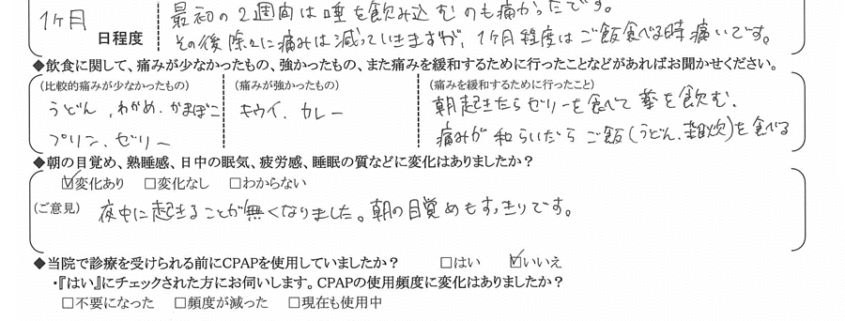 最初の2週間は唾を飲み込むのも痛かったです。
1ヶ月 日程度 その後除々に痛みは減っていきますが、1ヶ月程度はご飯食べる時痛いです。
◆飲食に関して、痛みが少なかったもの、強かったもの、また痛みを緩和するために行ったことなどがあればお聞かせください。
(比較的痛みが少なかったもの) (痛みが強かったもの) (痛みを緩和するために行ったこと)
うどん、わかめ、かまぼこ キウイ、カレー 朝起きたらゼリーを食べて薬を飲む、
プリン、ゼリー 痛みが和らいだらご飯(うどん、雑炊)を食べる
◆朝の目覚め、熟睡感、日中の眠気、疲労感、睡眠の質などに変化はありましたか?
☑変化あり □変化なし □わからない
(ご意見) 夜中に起きることが無くなりました。朝の目覚めもすっきりです。
◆当院で診療を受けられる前にCPAPを使用していましたか? □はい ☑いいえ
・『はい』にチェックされた方にお伺いします。CPAPの使用頻度に変化はありましたか?
□不要になった □頻度が減った □現在も使用中